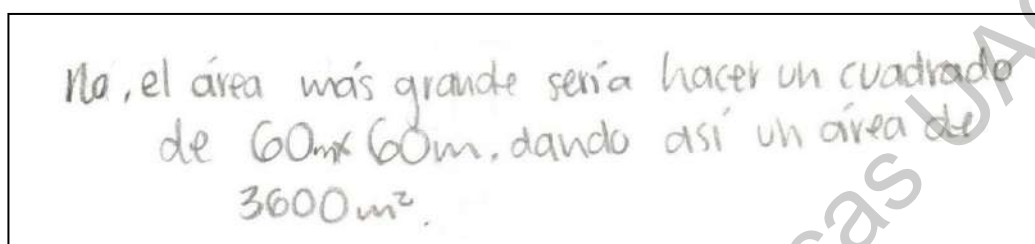 No, el área más grande sería hacer un cuadrado
de 60m x 60m, dando así un área de
3600 m².